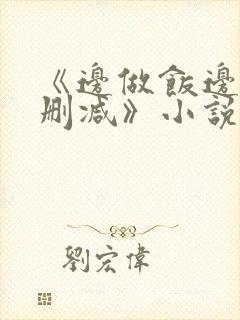 《邊做飯邊
刪减》小說
劉宏偉